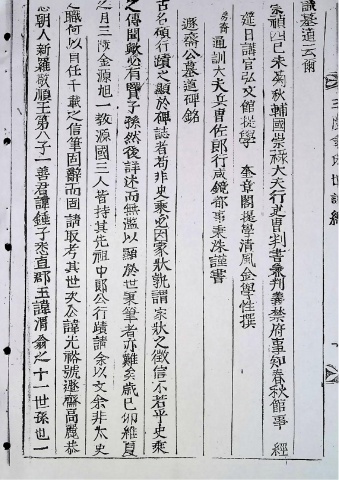 識墓道云爾
崇禎四己未菊秋輔國崇祿大夫行吏曹判書兼判義禁府事知春秋館事 經
筵日講官弘文館提學 奎章閣提學清風金學性撰
通訓大夫兵曹佐郎行咸鏡都事秉洙謹書
遯齋公墓道碑銘
古名碩行蹟之顯於碑誌者苟非史乘必因家狀孰謂家狀之徵信不若乎史乘
之傳聞歟必有賢子孫然後詳述而無濫以顯於世秉筆者亦難矣歲己卯維夏
之月三陟金源旭一教源國三人者持其先祖中郎公行蹟請余以文余非太史
之職何以自任千載之信筆固辭而固請取考其世次公諱光裕號遯齋高麗恭
愍朝人新羅敬順王第八子一善君諱錘子悉直郡王諱渭翁之十一世孫也一